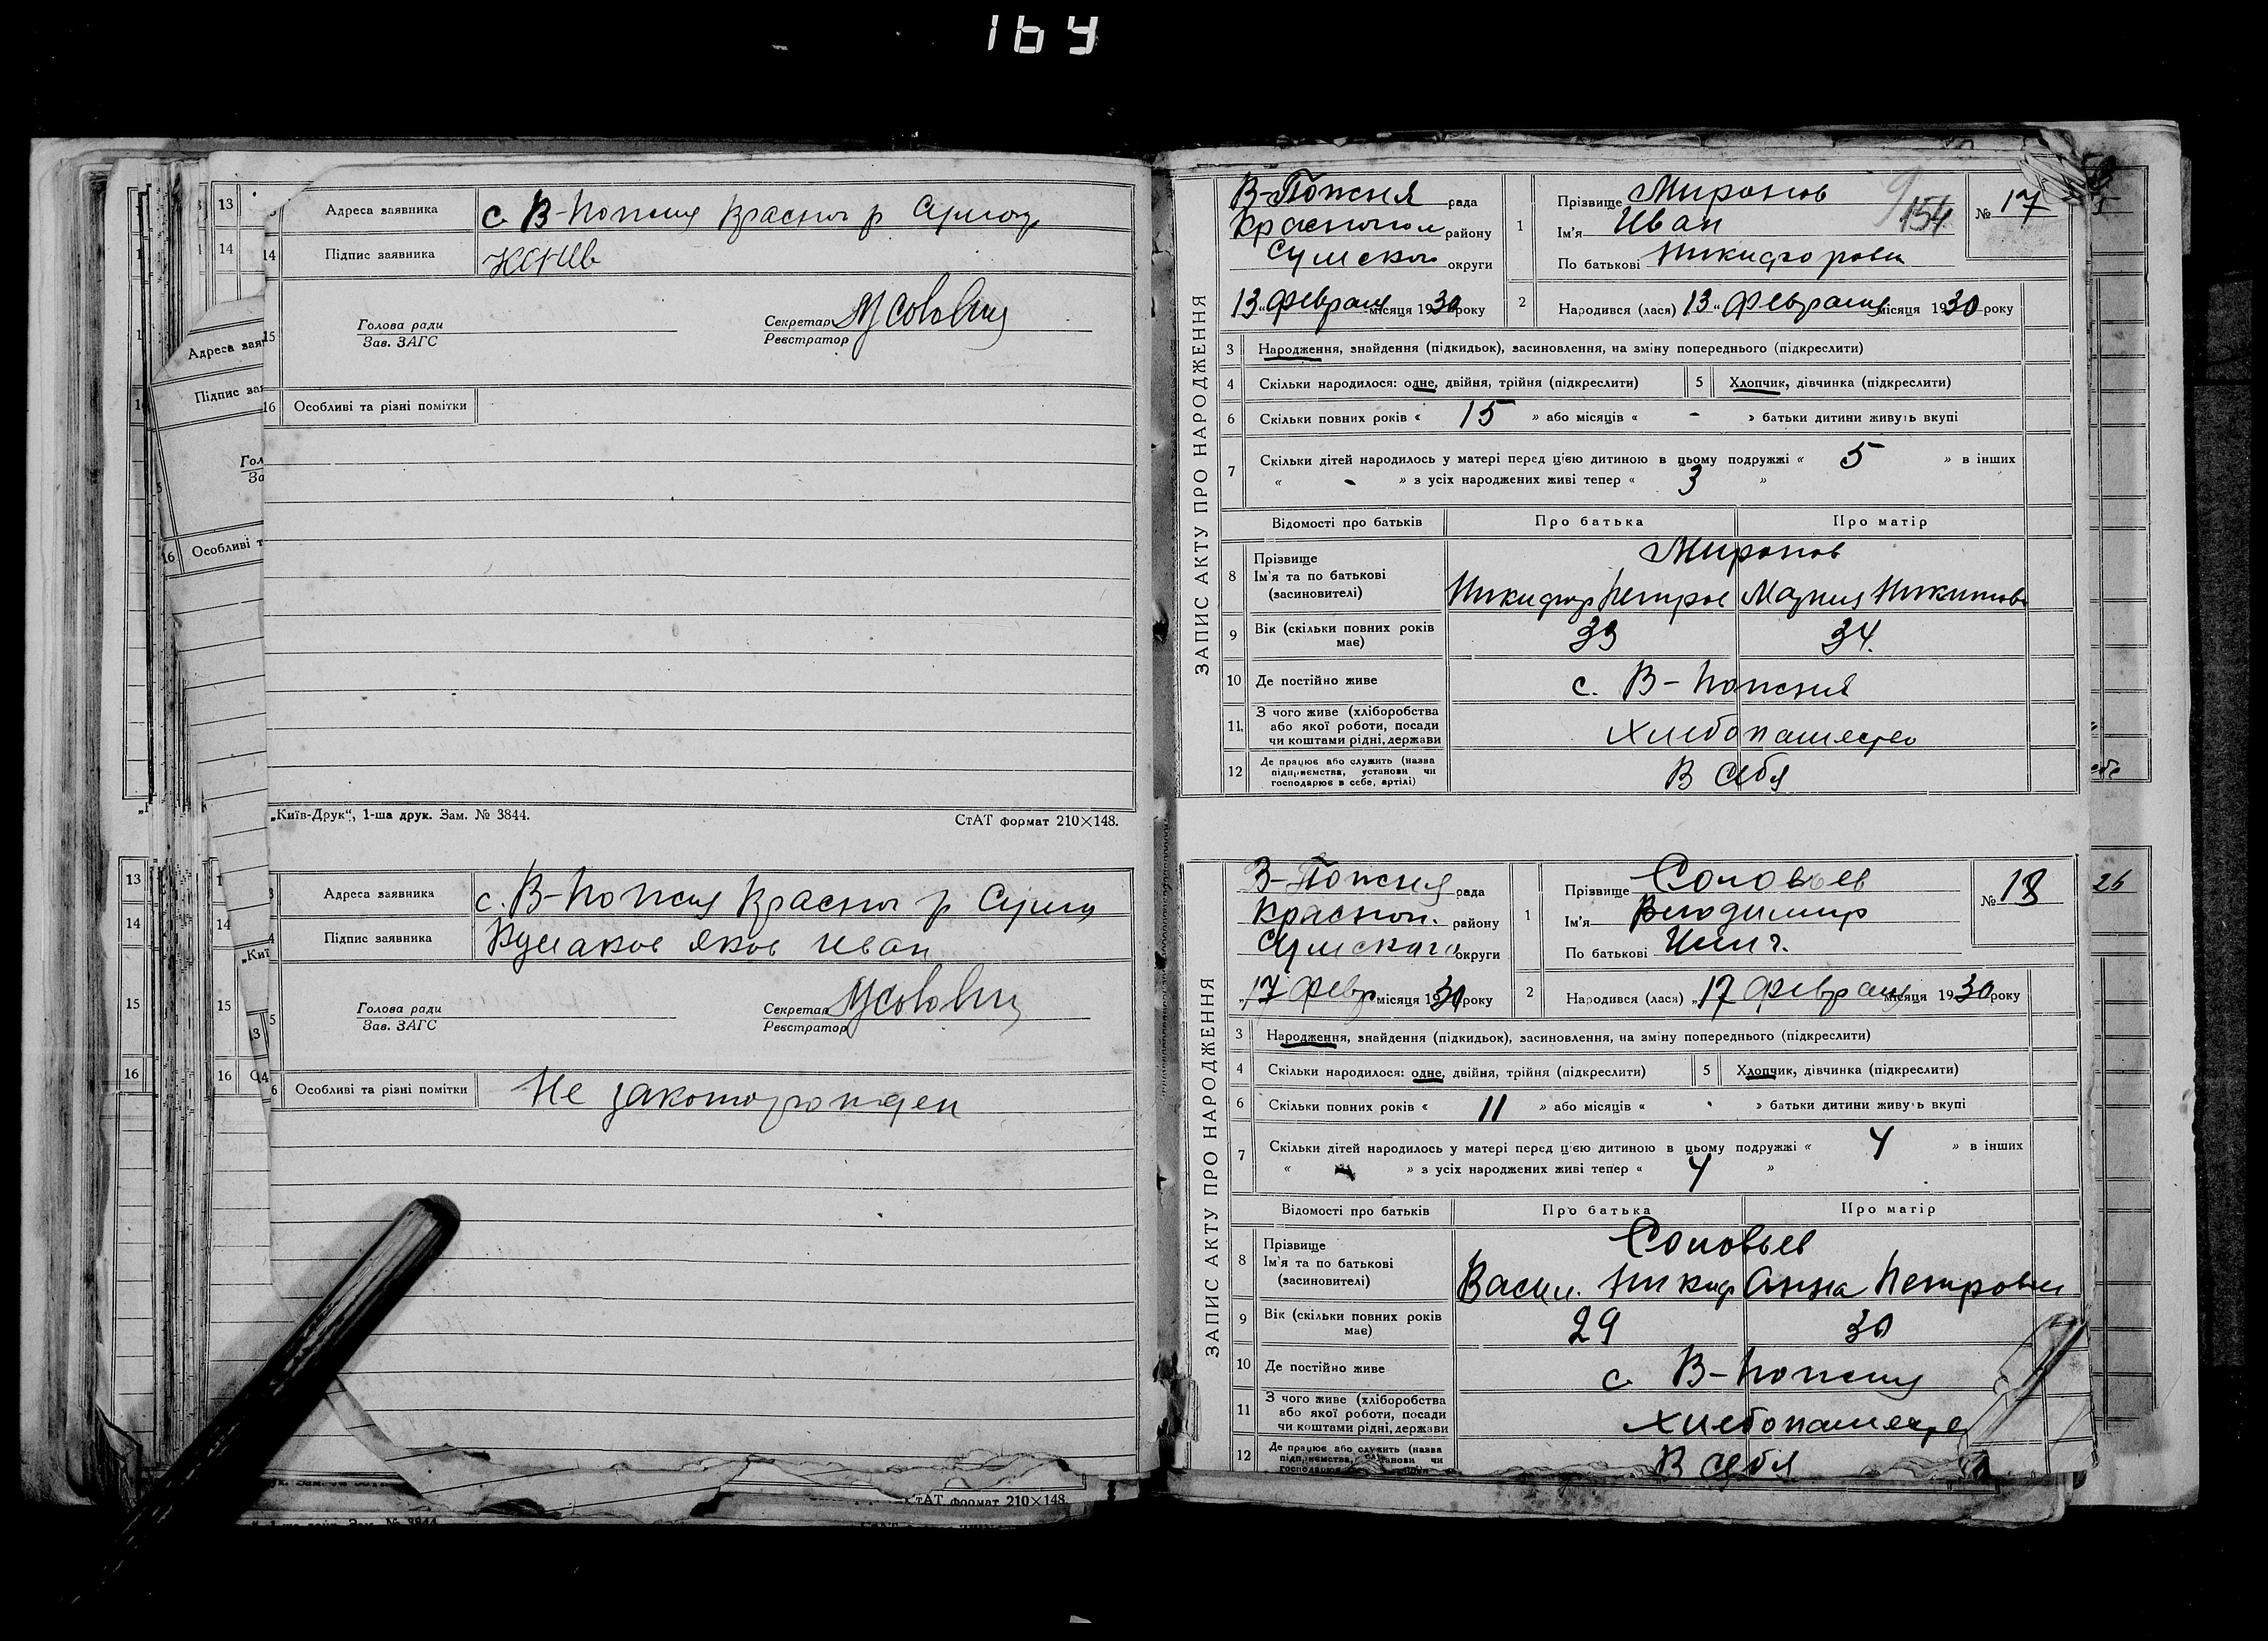 164
13
14
Адреса заявника с. В-Пожня Красноп р Сумск
14 Підпис заявника
Голова ради
Зав. ЗАГС
Секретар
Реєстратор
15
16 Особливі та різні помітки
„Київ-Друк“, 1-ша друк. Зам. № 3844.
СтАТ формат 210×148.
13
14
15
16
Адреса заявника с. В-Пожня Красноп р Сумск
Підпис заявника Кумаков Яков Иван
Голова ради
Зав. ЗАГС
Секретар
Реєстратор
Особливі та різні помітки Не законорожден
СтАТ формат 210×148.
ЗАПИС АКТУ ПРО НАРОДЖЕННЯ
В-Пожня рада
Краснопол району
Сумской округи
13 „ Февраля місяця 1930 року
1 Прізвище Миронов
Ім'я Иван
По батькові Никифорови
154
№ 17
2 Народився (лася) 13 “ Февраля місяця 1930 року
3 Народження, знайдення (підкидьок), засиновлення, на зміну попереднього (підкреслити)
4 Скільки народилося: одне, двійня, трійня (підкреслити) 5 Хлопчик, дівчинка (підкреслити)
6 Скільки повних років « 15 » або місяців « - » батьки дитини живуть вкупі
7 Скільки дітей народилось у матері перед цією дитиною в цьому подружжі « 5 » в інших
« - » з усіх народжених живі тепер « 3 »
Відомості про батьків Про батька Про матір
8 Прізвище
Ім'я та по батькові
(засиновителі)
Миронов
Никифор Петров Мария Никитов
9 Вік (скільки повних років має) 33 34.
10 Де постійно живе с. В-Пожня
11 З чого живе (хліборобства
або якої роботи, посади
чи коштами рідні, держави
Хлебопашество
12 Де працює або служить (назва
підприємства, установи чи
господарює в себе, артілі)
В себя
ЗАПИС АКТУ ПРО НАРОДЖЕННЯ
В-Пожня рада
Красноп. району
Сумского округи
„17 Февр місяця 1930 року
1 Прізвище Соловьев
Ім'я Владимир
По батькові
№ 18
2 Народився (лася) „17 Февраля місяця 1930 року
3 Народження, знайдення (підкидьок), засиновлення, на зміну попереднього (підкреслити)
4 Скільки народилося: одне, двійня, трійня (підкреслити) 5 Хлопчик, дівчинка (підкреслити)
6 Скільки повних років « 11 » або місяців « - » батьки дитини живуть вкупі
7 Скільки дітей народилось у матері перед цією дитиною в цьому подружжі « 4 » в інших
« - » з усіх народжених живі тепер « 4 »
Відомості про батьків Про батька Про матір
8 Прізвище
Ім'я та по батькові
(засиновителі)
Соловьев
Васил. Никиф Анна Петровн
9 Вік (скільки повних років має) 29 30
10 Де постійно живе с. В-Пожня
11 З чого живе (хліборобства
або якої роботи, посади
чи коштами рідні, держави
Хлебопашество
12 Де працює або служить (назва
підприємства, установи чи
В себя
26